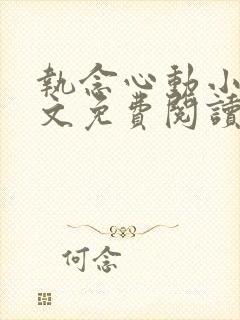 執念心動小
文免費閱讀
何念